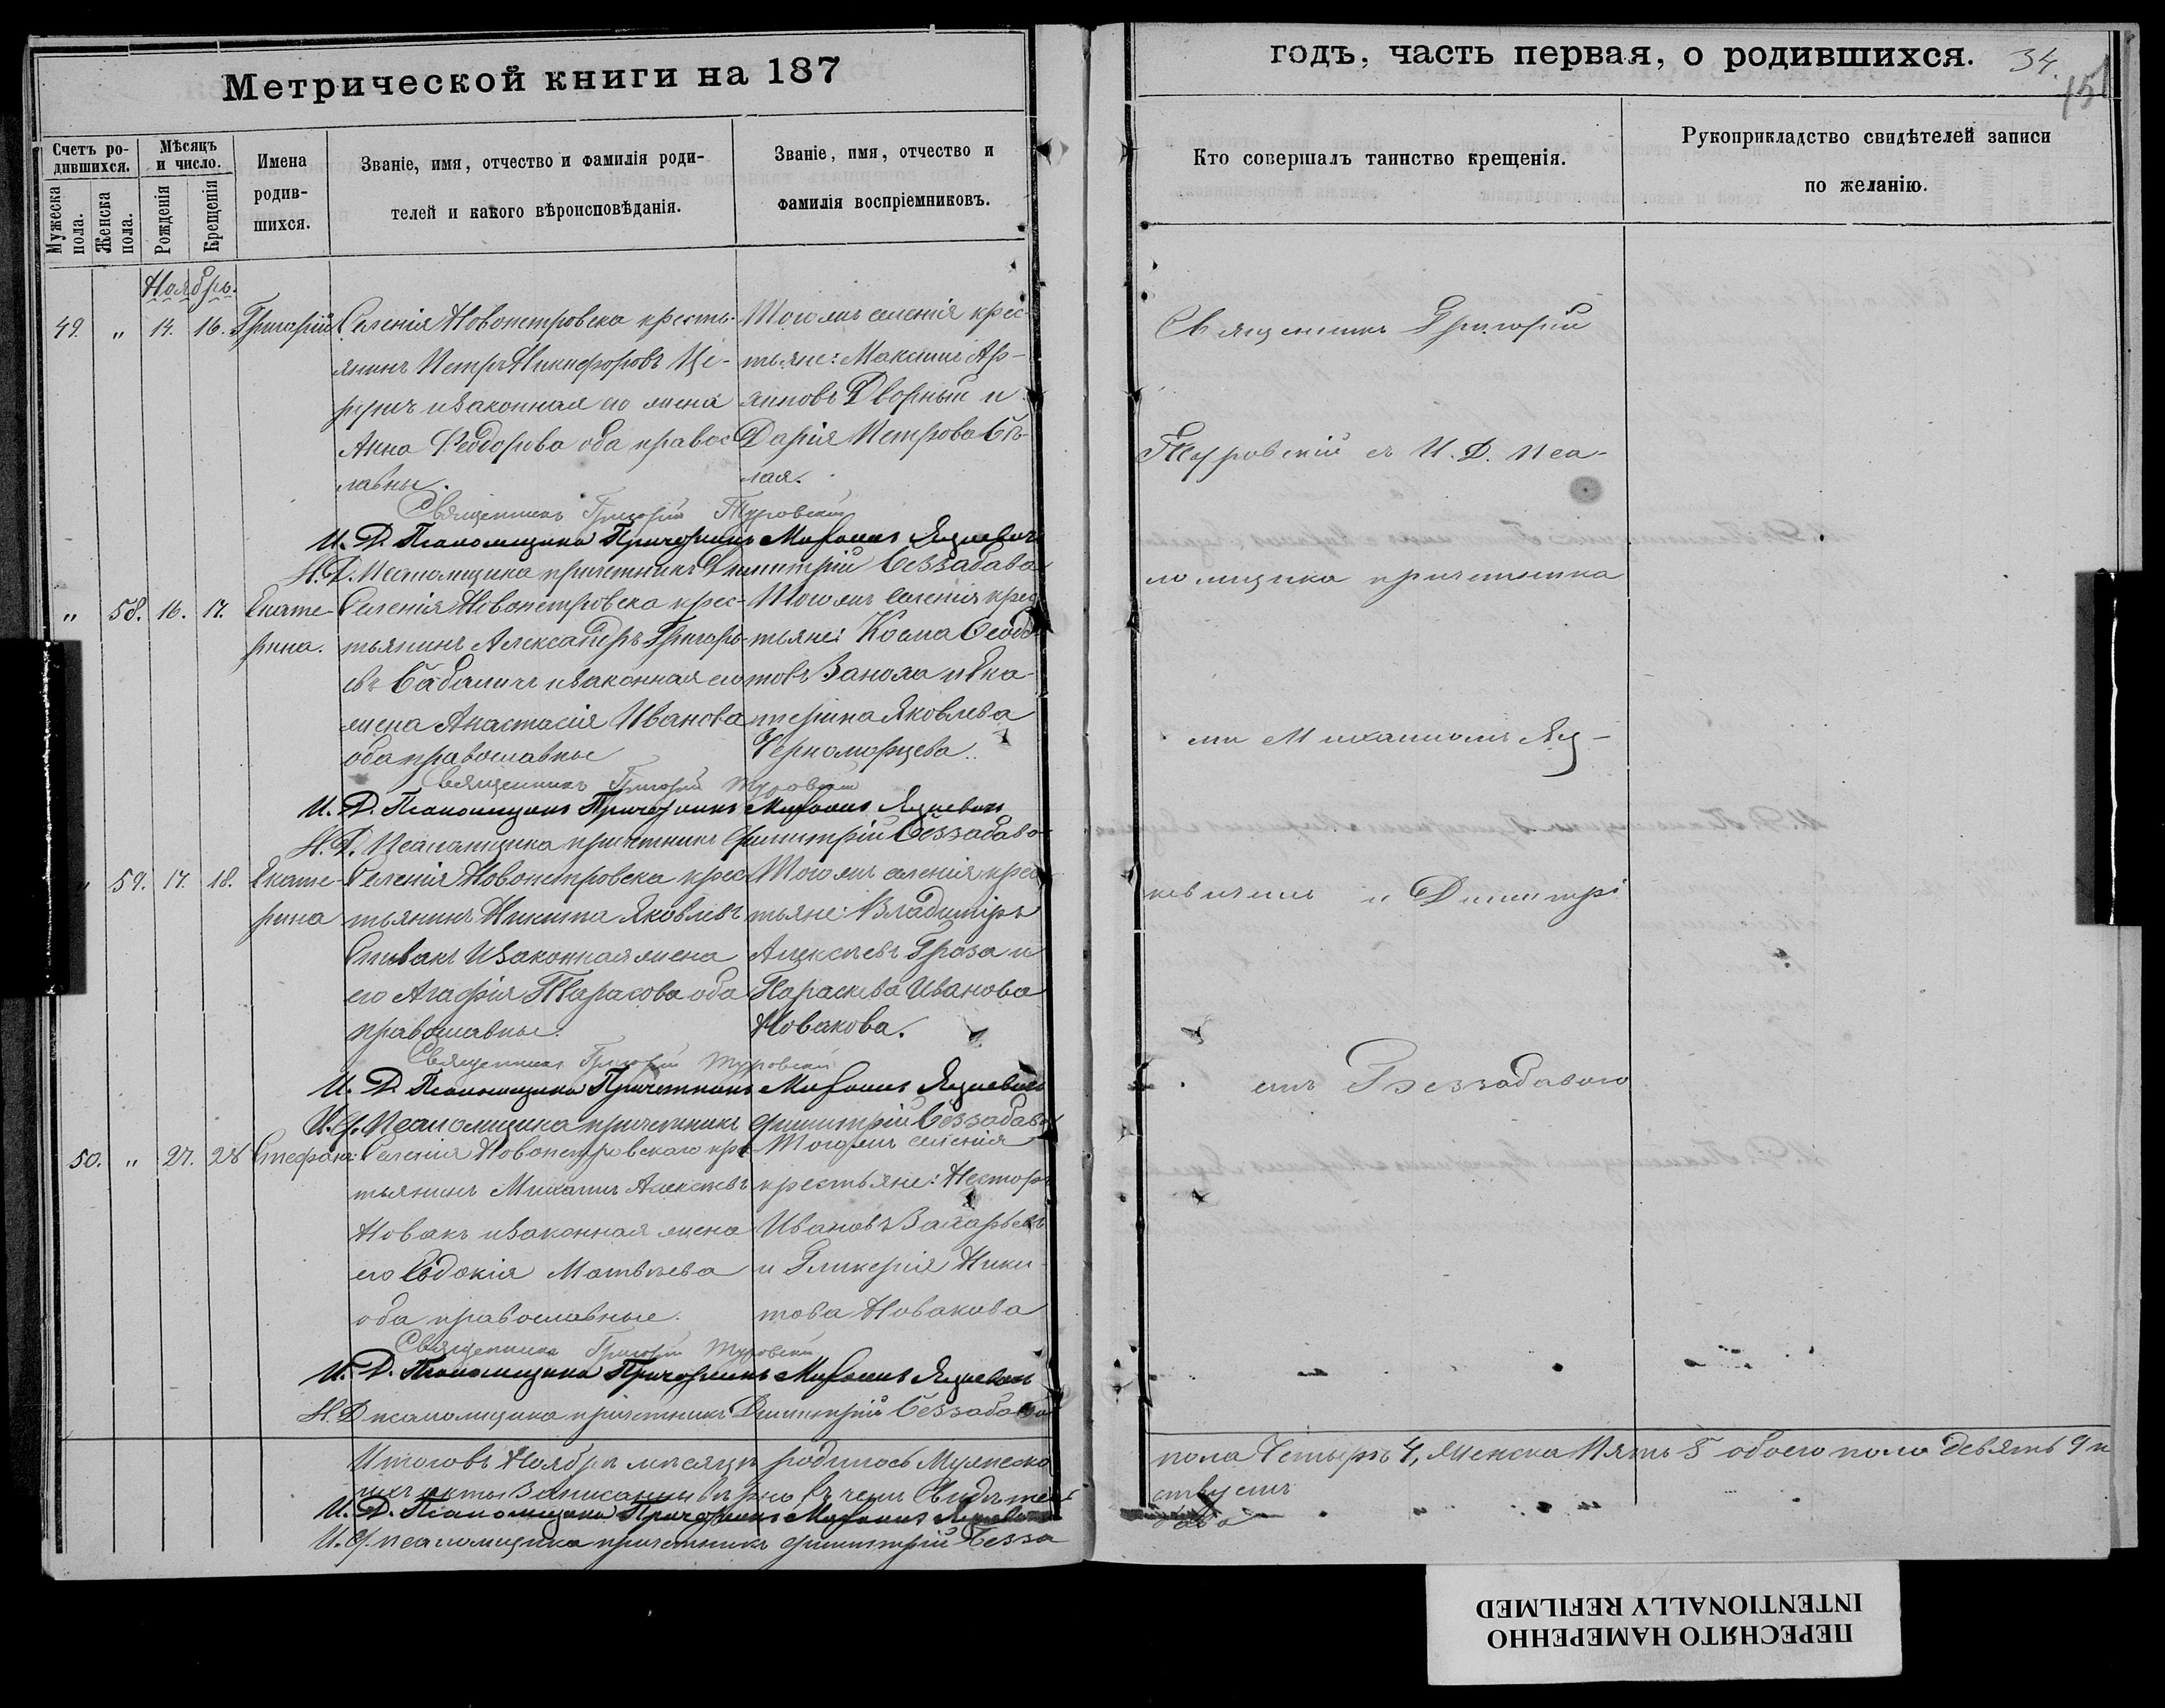 Метрической книги на 187
годъ, часть первая, о родившихся.
34.
151
Счетъ ро-
дившихся.
Мѣсяцъ
и число.
Мужеска
пола.
Женска
пола.
Рожденія
Крещенія
Имена
родив-
шихся.
Званіе, имя, отчество и фамилія роди-
телей и какого вѣроисповѣданія.
Званіе, имя, отчество и
фамилія воспріемниковъ.
Кто совершалъ таинство крещенія.
Рукоприкладство свидѣтелей записи
по желанію.
Ноябрь.
49. " 14. 16. Григорій
Селенія Новопетровска кресть-
янинъ Петръ Никифоровъ
и законная его жена
Анна Феодорова оба правос-
лавны.
Тогожъ селенія крес-
тьяне: Максимъ
Дворный и
Дарія Петрова Бѣ-
лая.
Священникъ Григорій Туровскій
И. Д. Псаломщика Причетникъ Михаилъ Яцкевичъ
И. Д. Псаломщика причетникъ Димитрій Беззабава
" 58. 16. 17. Екате-
рина.
Селенія Новопетровска крес-
тьянинъ Александръ Григорь-
евъ и законная его
жена Анастасія Иванова
оба православные
Тогожъ селенія крес-
тьяне: Косма
и Ека-
терина Яковлева
Черноморцева.
Священникъ Григорій Туровскій
И. Д. Псаломщика Причетникъ Михаилъ Яцкевичъ
И. Д. Псаломщика причетникъ Димитрій Беззабаво
" 59. 17. 18. Екате-
рина
Селенія Новопетровска крес-
тьянинъ Никита Яковлевъ
Спивакъ и законная жена
его Агафія Тарасова оба
православные.
Тогожъ селенія крес-
тьяне: Владиміръ
Алексѣевъ Гроза и
Параскева Иванова
Новакова.
Священникъ Григорій Туровскій
И. Д. Псаломщика Причетникъ Михаилъ Яцкевичъ
И. Д. Псаломщика причетникъ Димитрій Беззабава
50. " 27. 28 Стефанъ
Селенія Новопетровскаго крес-
тьянинъ Михаилъ Алексѣевъ
Новакъ и законная жена
его Евдокія Матвѣева
оба православные.
Тогожъ селенія
крестьяне: Несторъ
Ивановъ
и Гликерія Ники-
това Новакова
Священникъ Григорій Туровскій
И. Д. Псаломщика Причетникъ Михаилъ Яцкевичъ
И. Д. псаломщика причетникъ Димитрій Беззабава
Священникъ Григорій
Туровскій съ И. Д. Пса-
ломщика причетника
ми Михаиломъ Яц-
кевичемъ и Димитрі
емъ Беззабавою
Итого въ Ноябрѣ мѣсяцѣ родилось Мужеска
пола Четыре 4, Женска Пять 5 обоего пола девять 9 и
акты записаны вѣрно, въ чемъ свидѣтель-
ствуемъ
И. Д. Псаломщика Причетникъ Михаилъ Яцкевичъ
И. Д. псаломщика причетникъ Димитрій Безза
бава
ПЕРЕСНЯТО НАМЕРЕННО
INTENTIONALLY REFILMED